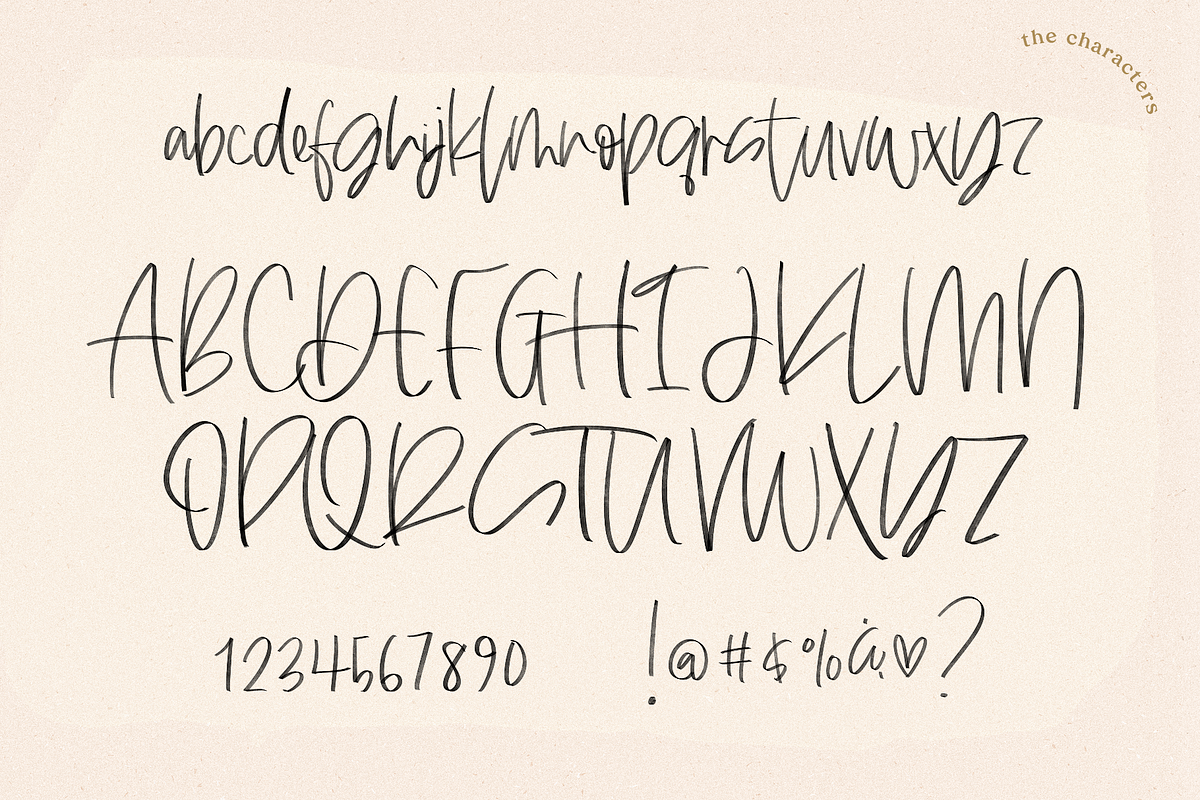 the characters
abcdefghijklmnopqrstuvwxyz
ABCDEFGHIJKLMN
OPQRSTUVWXYZ
1234567890 !@#$%
♡?